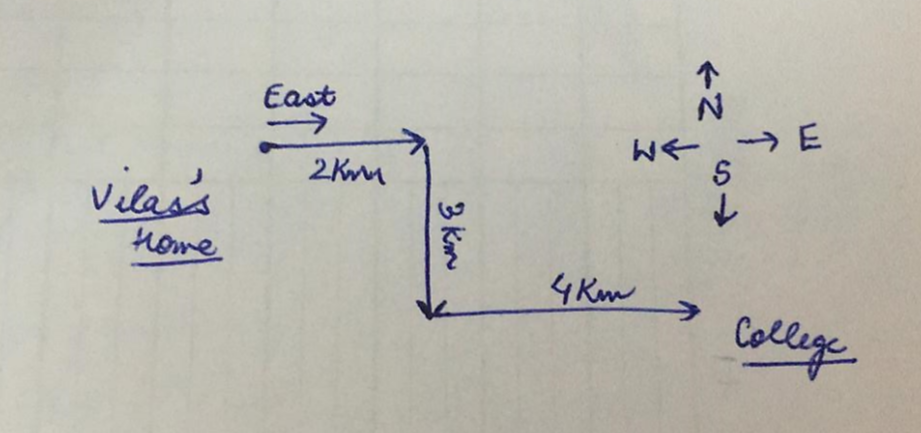 East
2Km
Vilas's
Home
3Km
4Km
College
N
W E
S